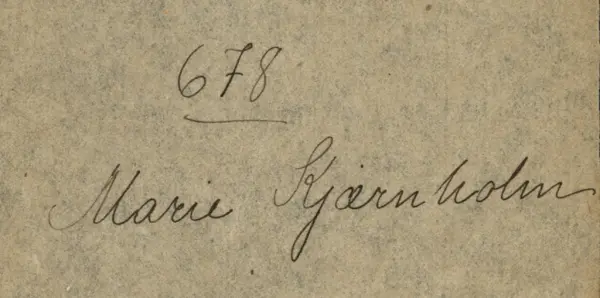 678
Marie Kjærnholm